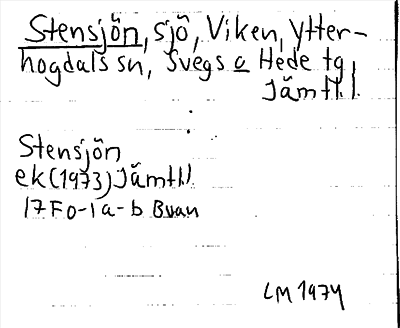 Stensjön, sjö, Viken, Ytter-
hogdals sn, Svegs o Hede tg
Jämtl.
Stensjön
ek (1973) Jämtl.
17F 0-1 a-b Buan
LM 1974